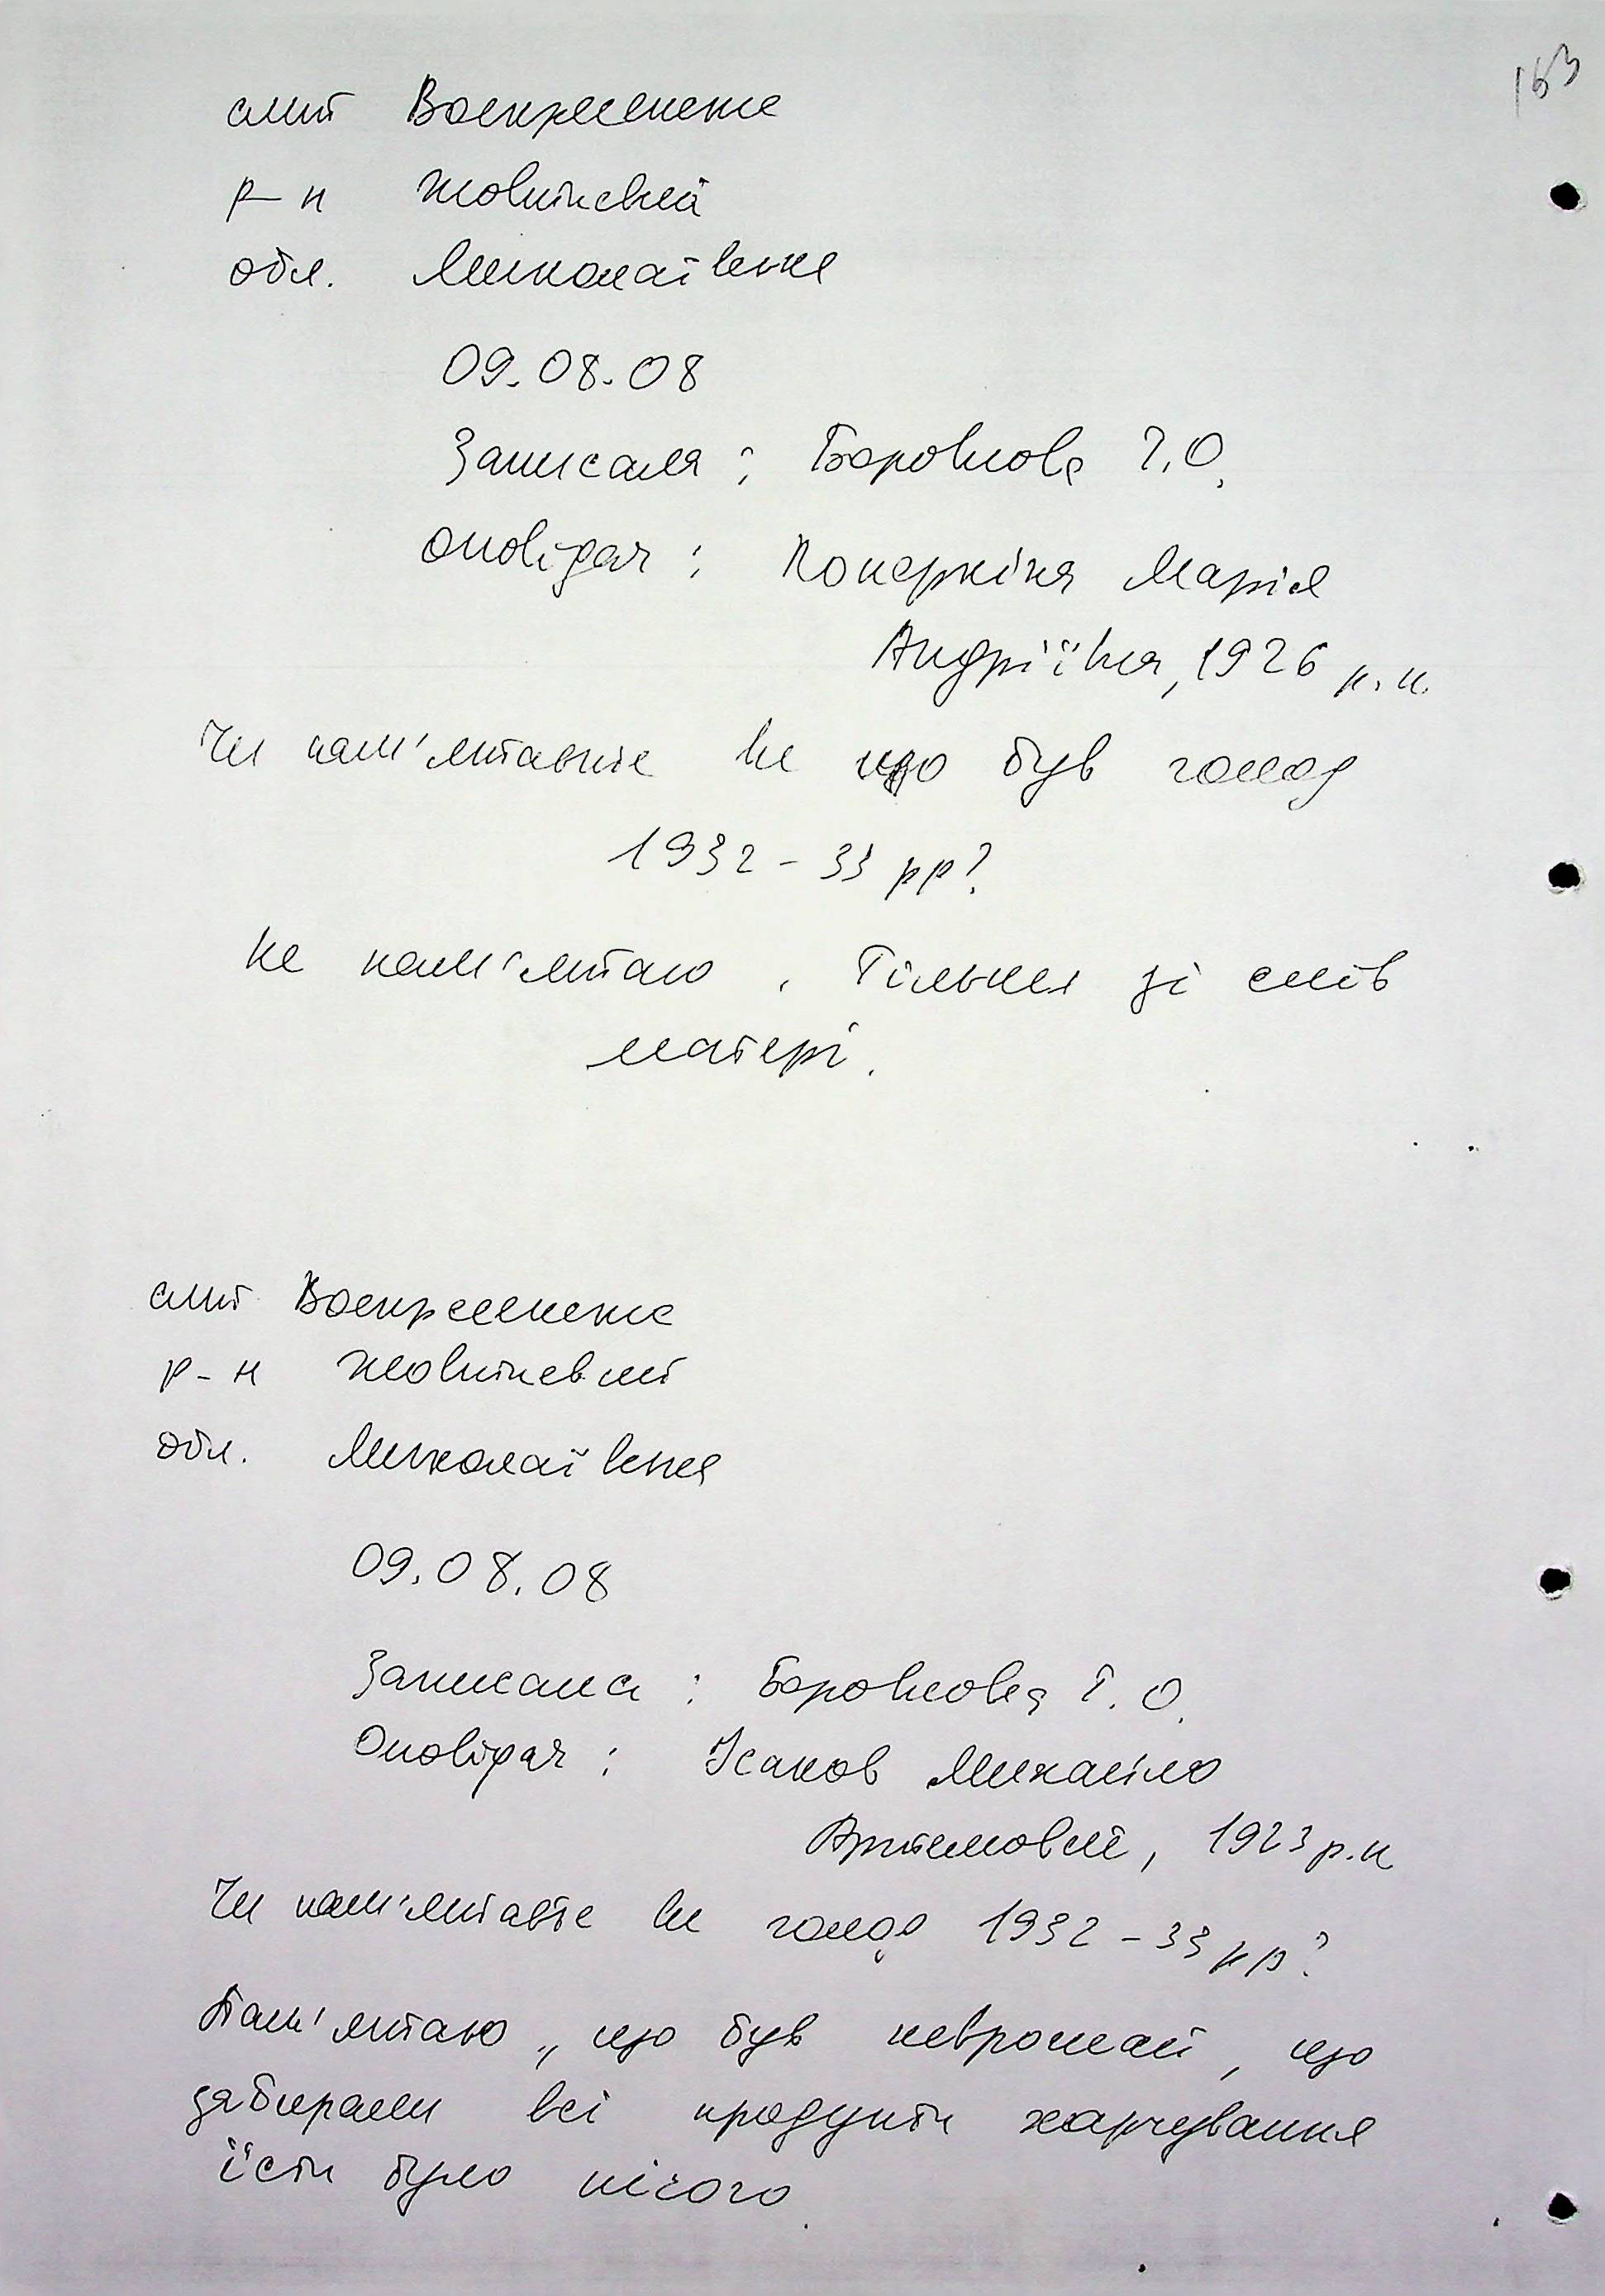 163
смт Воскресенське
р-н Жовтневий
обл. Миколаївська
09.08.08
Записала: Боровкова Т.О.
Оповідач: Марія
Андріївна, 1926 р.н.
Чи пам'ятаєте ви що був голод
1932-33 рр?
Не пам'ятаю. Тільки зі слів
матері.
смт Воскресенське
р-н Жовтневий
обл. Миколаївська
09.08.08
Записала: Боровкова Т.О.
Оповідач: Ісаков Михайло
Артемович, 1923 р.н
Чи пам'ятаєте ви голод 1932-33 рр?
Пам'ятаю, що був неврожай, що
забирали всі продукти харчування
їсти було нічого.